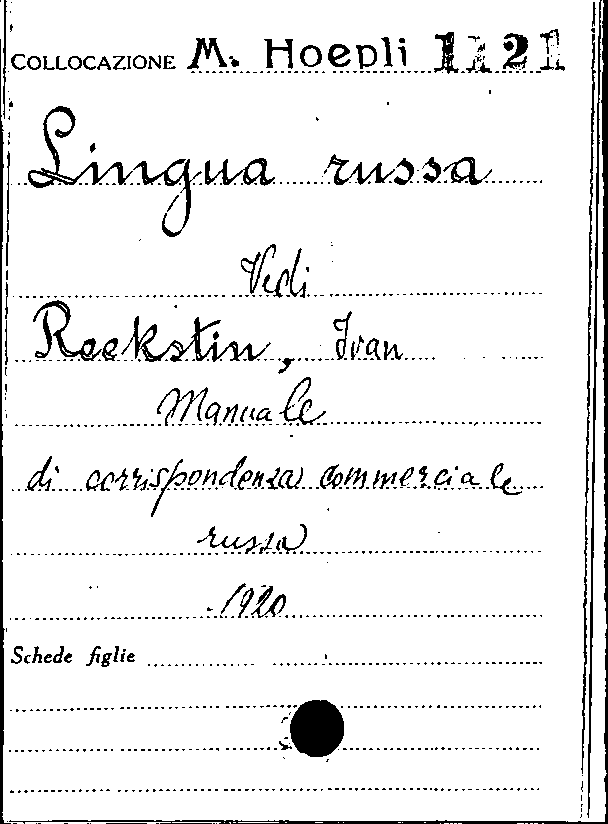 COLLOCAZIONE M. Hoepli 1121
Lingua russa
Vedi
Reekstin, Ivan
Manuale
di corrispondenza commerciale
russa
1920
Schede figlie